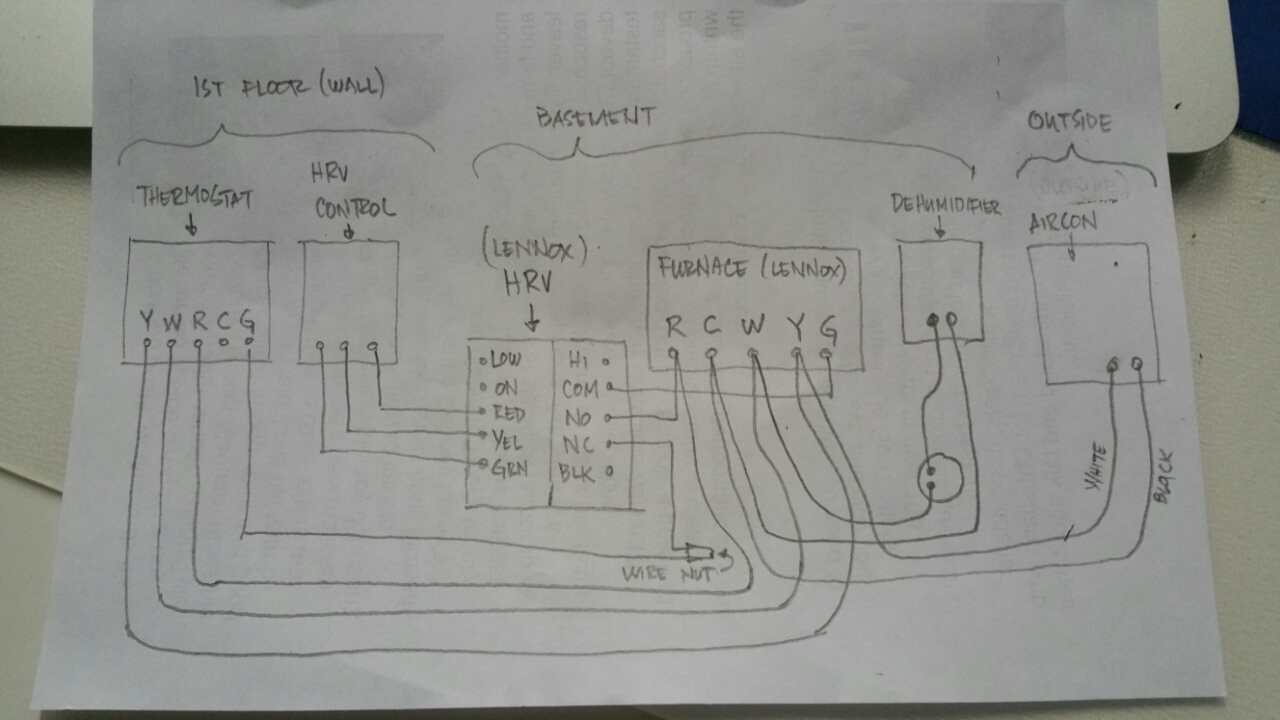 1ST FLOOR (WALL)
BASEMENT
OUTSIDE
THERMOSTAT
HRV
CONTROL
(LENNOX)
HRV
FURNACE (LENNOX)
DEHUMIDIFIER
AIRCON
Y W R C G
LOW
ON
RED
YEL
GRN
HI
COM
NO
NC
BLK
R C W Y G
WIRE NUT
WHITE
BLACK